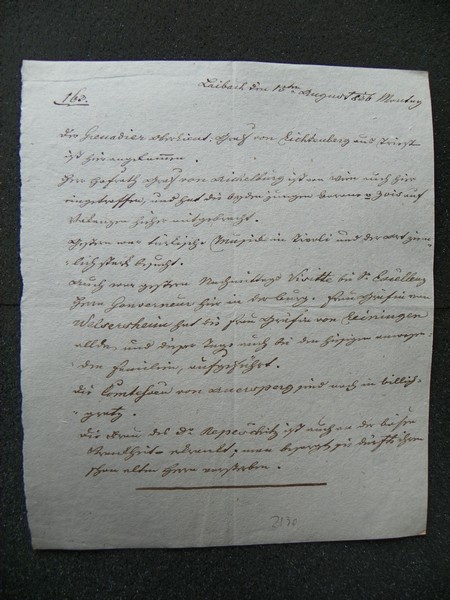 Laibach den 15ten August 836 Montag
163.
Der Grenadier Oberlieut. Graf von Lichtenberg aus Triest
ist hier angekommen.
Herr Hofrath Graf von Aichelburg ist von Wien auch hier
eingetroffen, und hat die beyden jungen Barone v Zois auf
hieher mitgebracht.
Gestern war türkische Musick in Tivoli und der Ort ziem-
lich stark besucht.
Auch war gestern Nachmittags Visitte bei Sr. Excellenz
Herrn Gouverneur hier in der Burg. Frau Gräfin von
Welsersheim hat die Frau Gräfin von Leiningen
allda, und diese Tage auch bei den hiesigen anwesen-
den Familien, aufgeführt.
Die Comtessen von Auersperg sind noch in Billich-
gratz.
Die Frau des Dr. ist auch an der bösen
Krankheit erkrankt, man besorgt, sie dürfte ihren
schon alten Herrn
2130